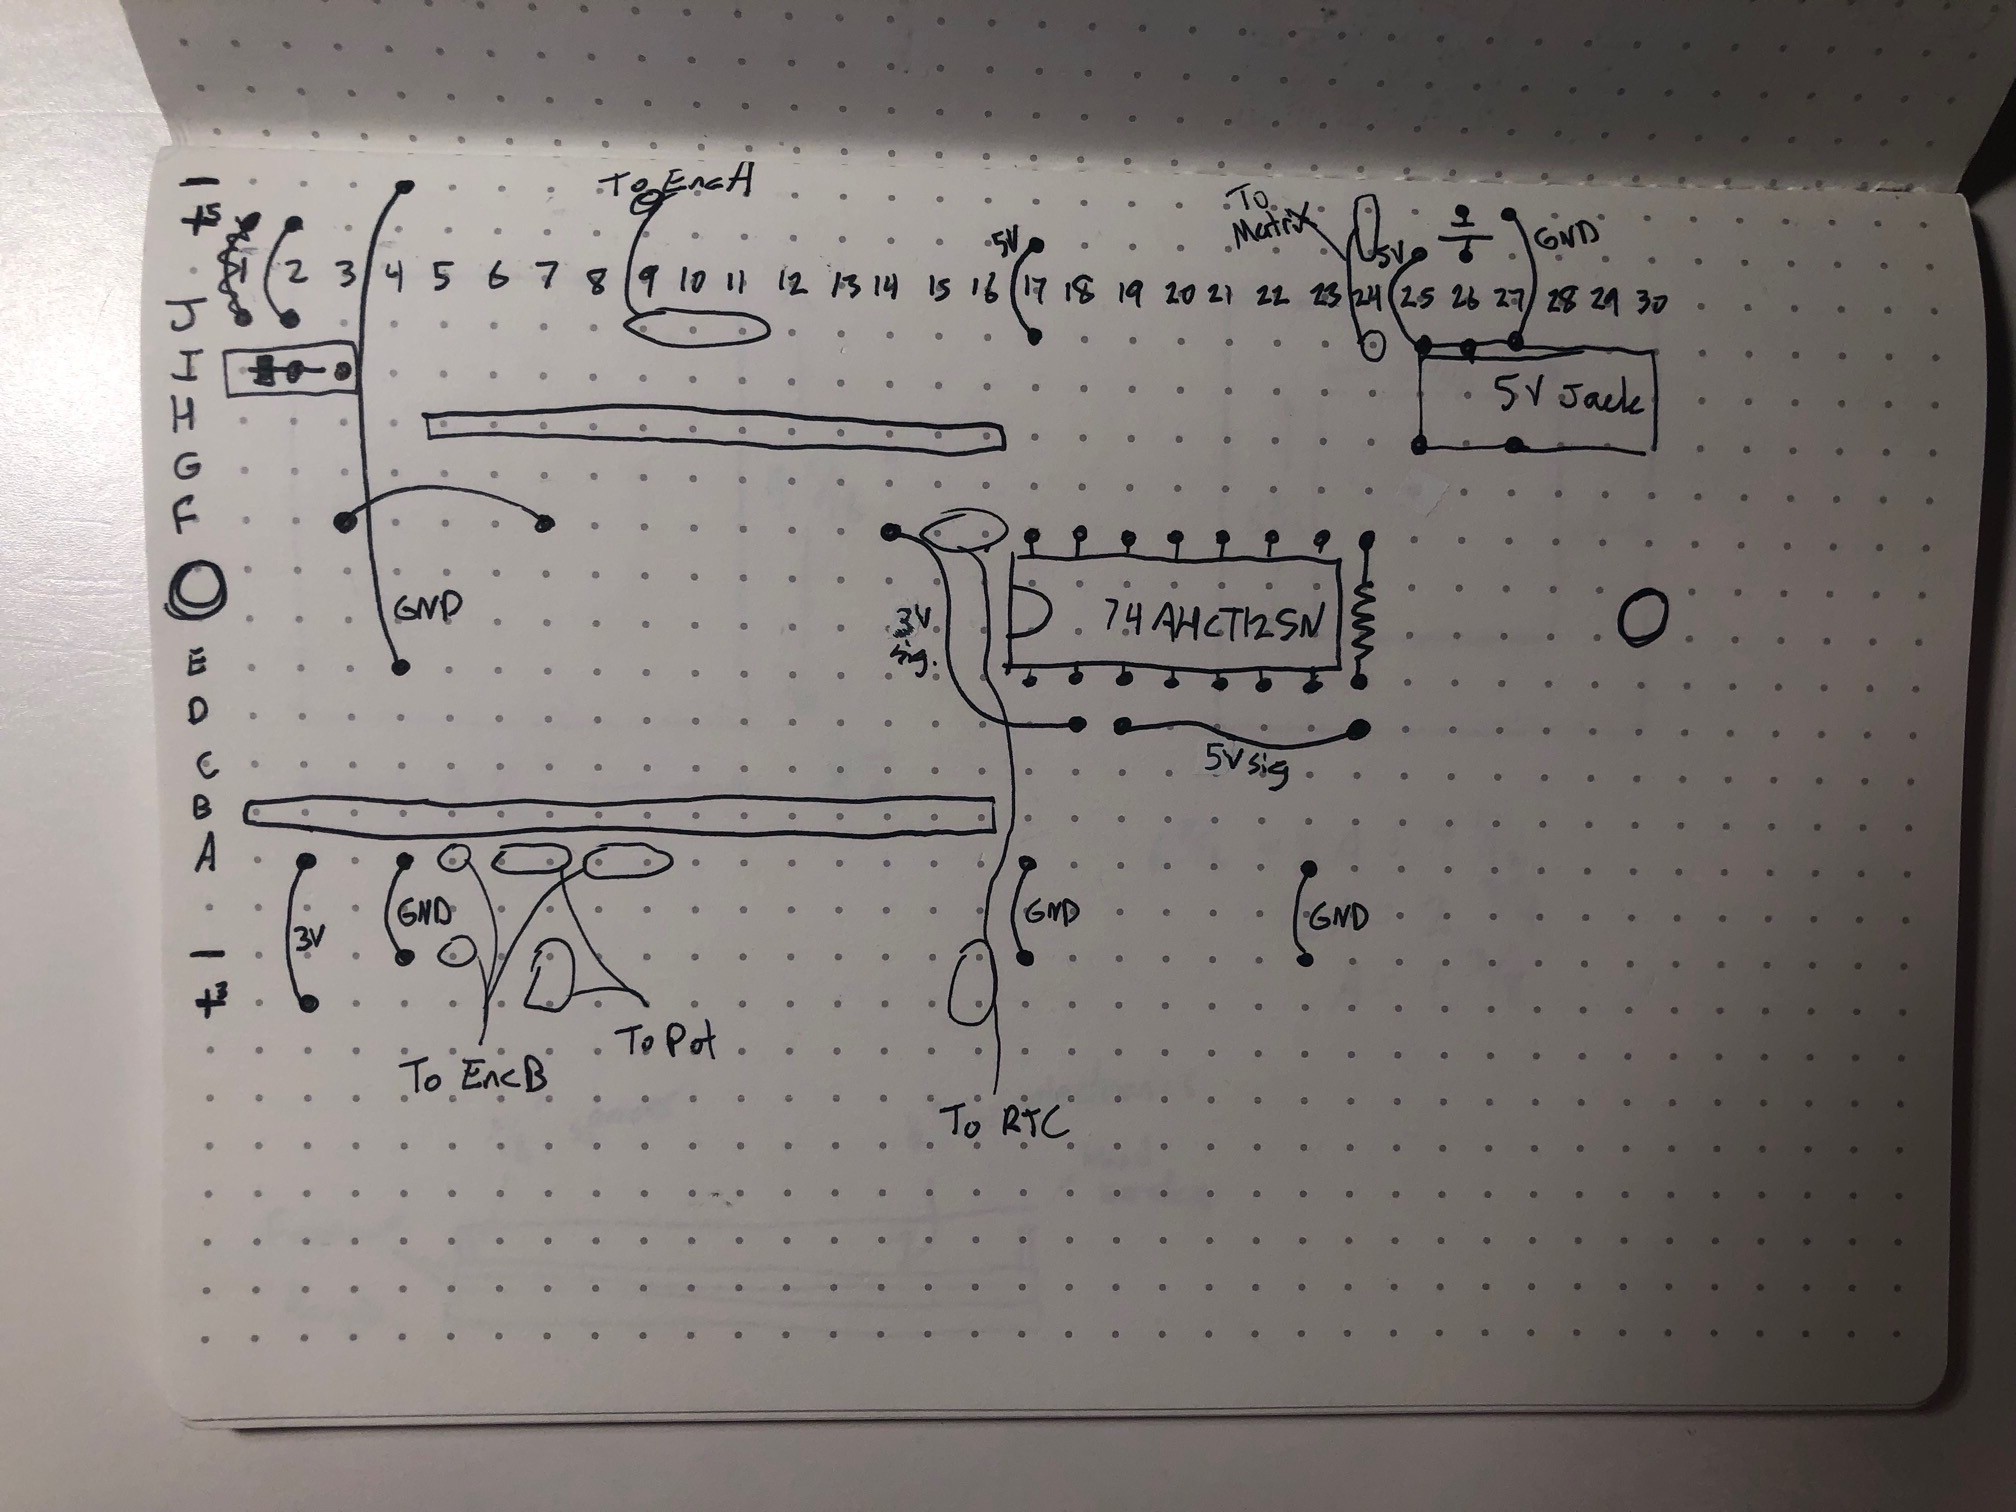 −
To EncA
To
Matrix
+5
5V
5V
GND
1 2 3 4 5 6 7 8 9 10 11 12 13 14 15 16 17 18 19 20 21 22 23 24 25 26 27 28 29 30
J
I
5V Jack
H
G
F
GND
3V
sig.
74AHCT125N
E
D
C
5V sig
B
A
3V
GND
GND
GND
−
+3
To EncB
To Pot
To RTC